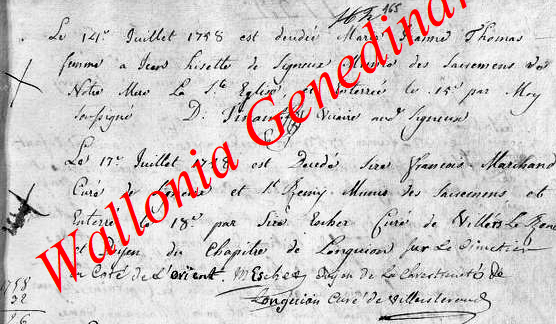 165
Le 14e Juillet 1758 est decedée Marie Jeanne Thomas
femme a Jean Lisette de Signeux Munie des Sacremens de
Notre Mere La Ste Eglise et enterrée le 15e par Moy
Soussigné D. Vicaire aud Signeux
Le 17e Juillet 1758 est Decedé Sire francois Marchand
Curé de et St Remy Munis des Sacremens et
Enterré le 18e par Sire Escher Curé de Villers Le Rond
et Doyen du Chapitre de Longuion sur Le Cimetier
au Coté de L'orient. M Escher Doyen de La Chretienneté de
Longuion Curé de Villerslerond
1758
32
Wallonia Genedinar